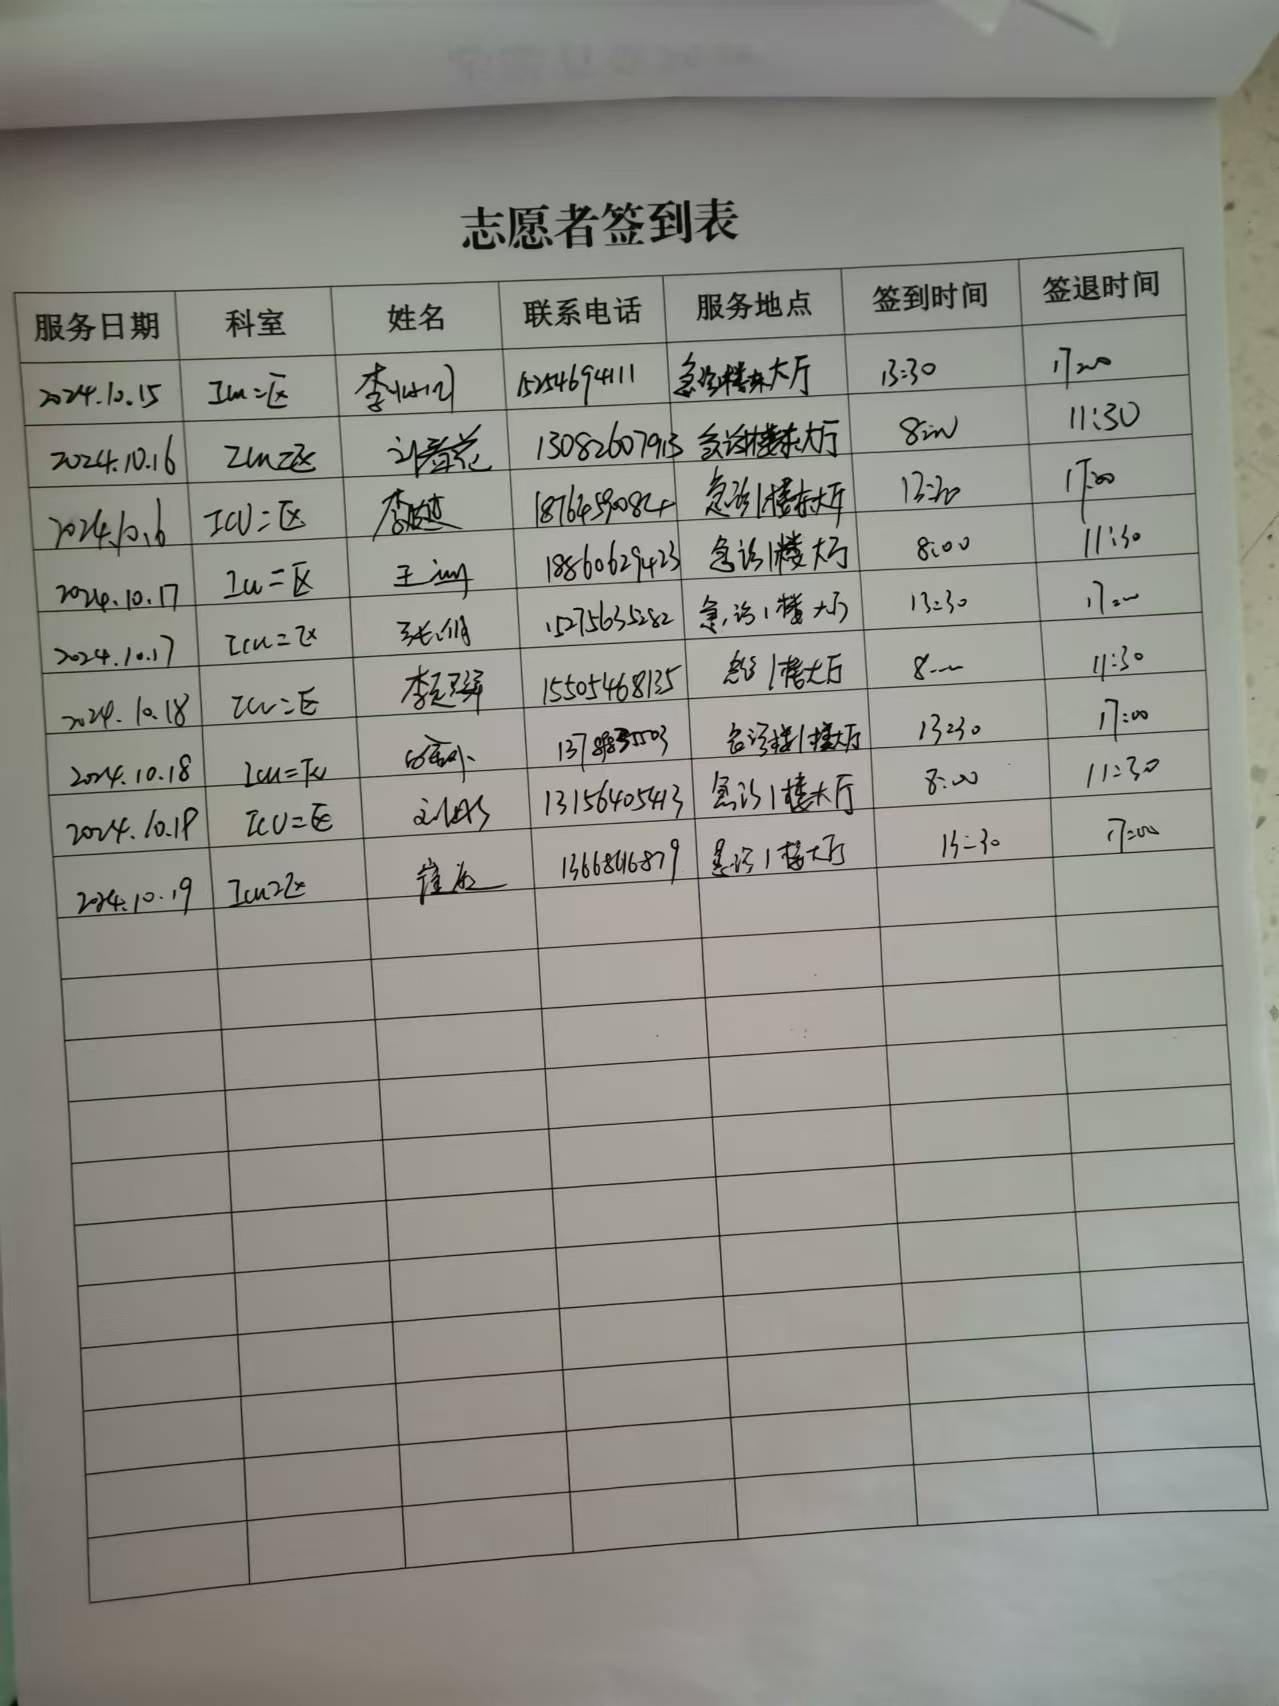 志愿者签到表
服务日期 科室 姓名 联系电话 服务地点 签到时间 签退时间
2024.10.15 ICU二区 李 15254694111 急诊楼东大厅 13:30 17:00
2024.10.16 ICU二区 刘春花 13082607913 急诊楼东大厅 8:00 11:30
2024.10.16 ICU二区 李 18764590824 急诊1楼东大厅 13:30 17:00
2024.10.17 ICU二区 王 18860629423 急诊1楼大厅 8:00 11:30
2024.10.17 ICU二区 张 15275635282 急诊1楼大厅 13:30 17:00
2024.10.18 ICU二区 李 15505468135 急诊1楼大厅 8:00 11:30
2024.10.18 ICU二区 急诊楼1楼大厅 13:30 17:00
2024.10.19 ICU二区 刘 13156405413 急诊1楼大厅 8:00 11:30
2024.10.19 ICU二区 崔 急诊1楼大厅 13:30 17:00